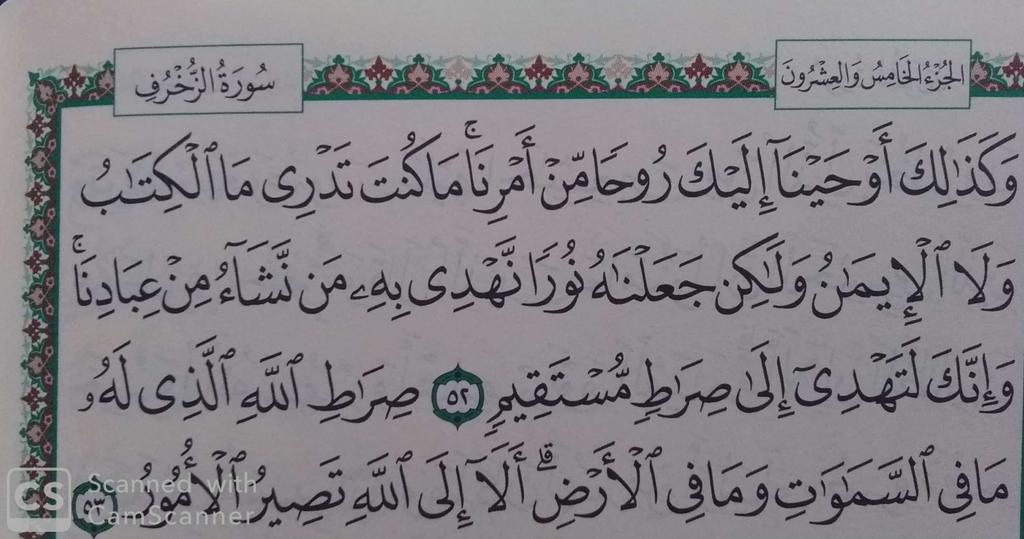 الجُزْءُ الخَامِسُ وَالعِشْرُونَ
سُورَةُ الزُّخْرُفِ
وَكَذَٰلِكَ أَوْحَيْنَآ إِلَيْكَ رُوحًا مِّنْ أَمْرِنَاۚ مَا كُنتَ تَدْرِى مَا ٱلْكِتَٰبُ
وَلَا ٱلْإِيمَٰنُ وَلَٰكِن جَعَلْنَٰهُ نُورًا نَّهْدِى بِهِۦ مَن نَّشَآءُ مِنْ عِبَادِنَاۚ
وَإِنَّكَ لَتَهْدِىٓ إِلَىٰ صِرَٰطٍ مُّسْتَقِيمٍ ٥٢ صِرَٰطِ ٱللَّهِ ٱلَّذِى لَهُۥ
مَا فِى ٱلسَّمَٰوَٰتِ وَمَا فِى ٱلْأَرْضِۗ أَلَآ إِلَى ٱللَّهِ تَصِيرُ ٱلْأُمُورُ ٥٣
CS Scanned with
CamScanner